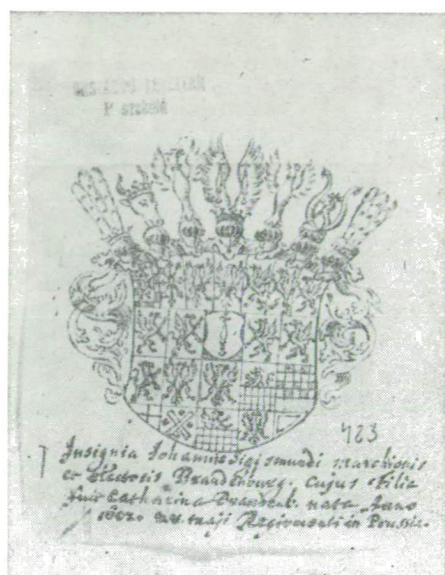 ORSZÁGOS LEVÉLTÁR
P szekció
423
Insignia Johannis Sigismundi Marchionis
et Electoris Brandenburg. cujus filia
fuit Catharina Brandenb. nata Anno
1602. Maji Regiomonti in Prussia.